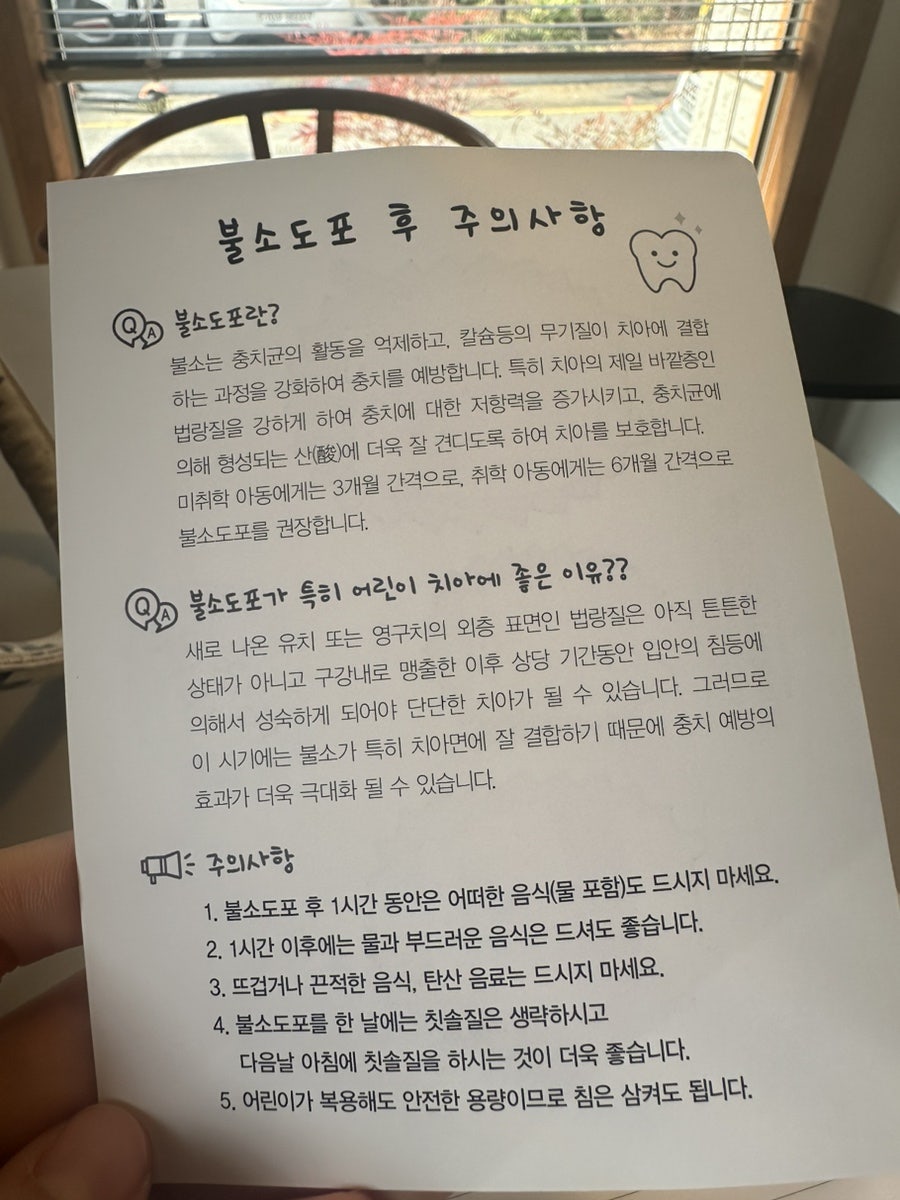 불소도포 후 주의사항
QA 불소도포란?
불소는 충치균의 활동을 억제하고, 칼슘등의 무기질이 치아에 결합
하는 과정을 강화하여 충치를 예방합니다. 특히 치아의 제일 바깥층인
법랑질을 강하게 하여 충치에 대한 저항력을 증가시키고, 충치균에
의해 형성되는 산(酸)에 더욱 잘 견디도록 하여 치아를 보호합니다.
미취학 아동에게는 3개월 간격으로, 취학 아동에게는 6개월 간격으로
불소도포를 권장합니다.
QA 불소도포가 특히 어린이 치아에 좋은 이유??
새로 나온 유치 또는 영구치의 외층 표면인 법랑질은 아직 튼튼한
상태가 아니고 구강내로 맹출한 이후 상당 기간동안 입안의 침등에
의해서 성숙하게 되어야 단단한 치아가 될 수 있습니다. 그러므로
이 시기에는 불소가 특히 치아면에 잘 결합하기 때문에 충치 예방의
효과가 더욱 극대화 될 수 있습니다.
주의사항
1. 불소도포 후 1시간 동안은 어떠한 음식(물 포함)도 드시지 마세요.
2. 1시간 이후에는 물과 부드러운 음식은 드셔도 좋습니다.
3. 뜨겁거나 끈적한 음식, 탄산 음료는 드시지 마세요.
4. 불소도포를 한 날에는 칫솔질은 생략하시고
다음날 아침에 칫솔질을 하시는 것이 더욱 좋습니다.
5. 어린이가 복용해도 안전한 용량이므로 침은 삼켜도 됩니다.